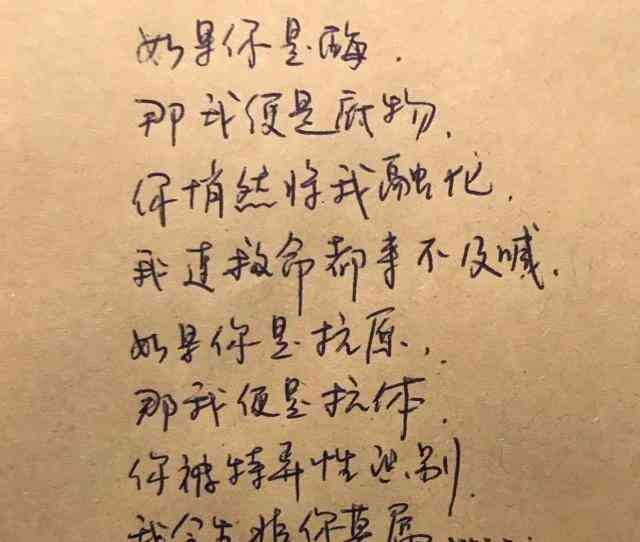 如果你是酶.
那我便是底物.
你悄然将我融化.
我连救命都来不及喊.
如果你是抗原.
那我便是抗体.
你被特异性识别.
我今生非你莫属